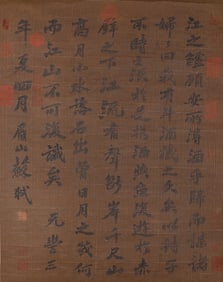 江之鱸顧安所得酒乎歸而謀諸
婦〻曰我有斗酒藏之久矣以待子
不時之須於是攜酒與魚復遊於赤
壁之下江流有聲斷岸千尺山
高月小水落石出曾日月之幾何
而江山不可復識矣 元豐三
年夏四月眉山蘇軾